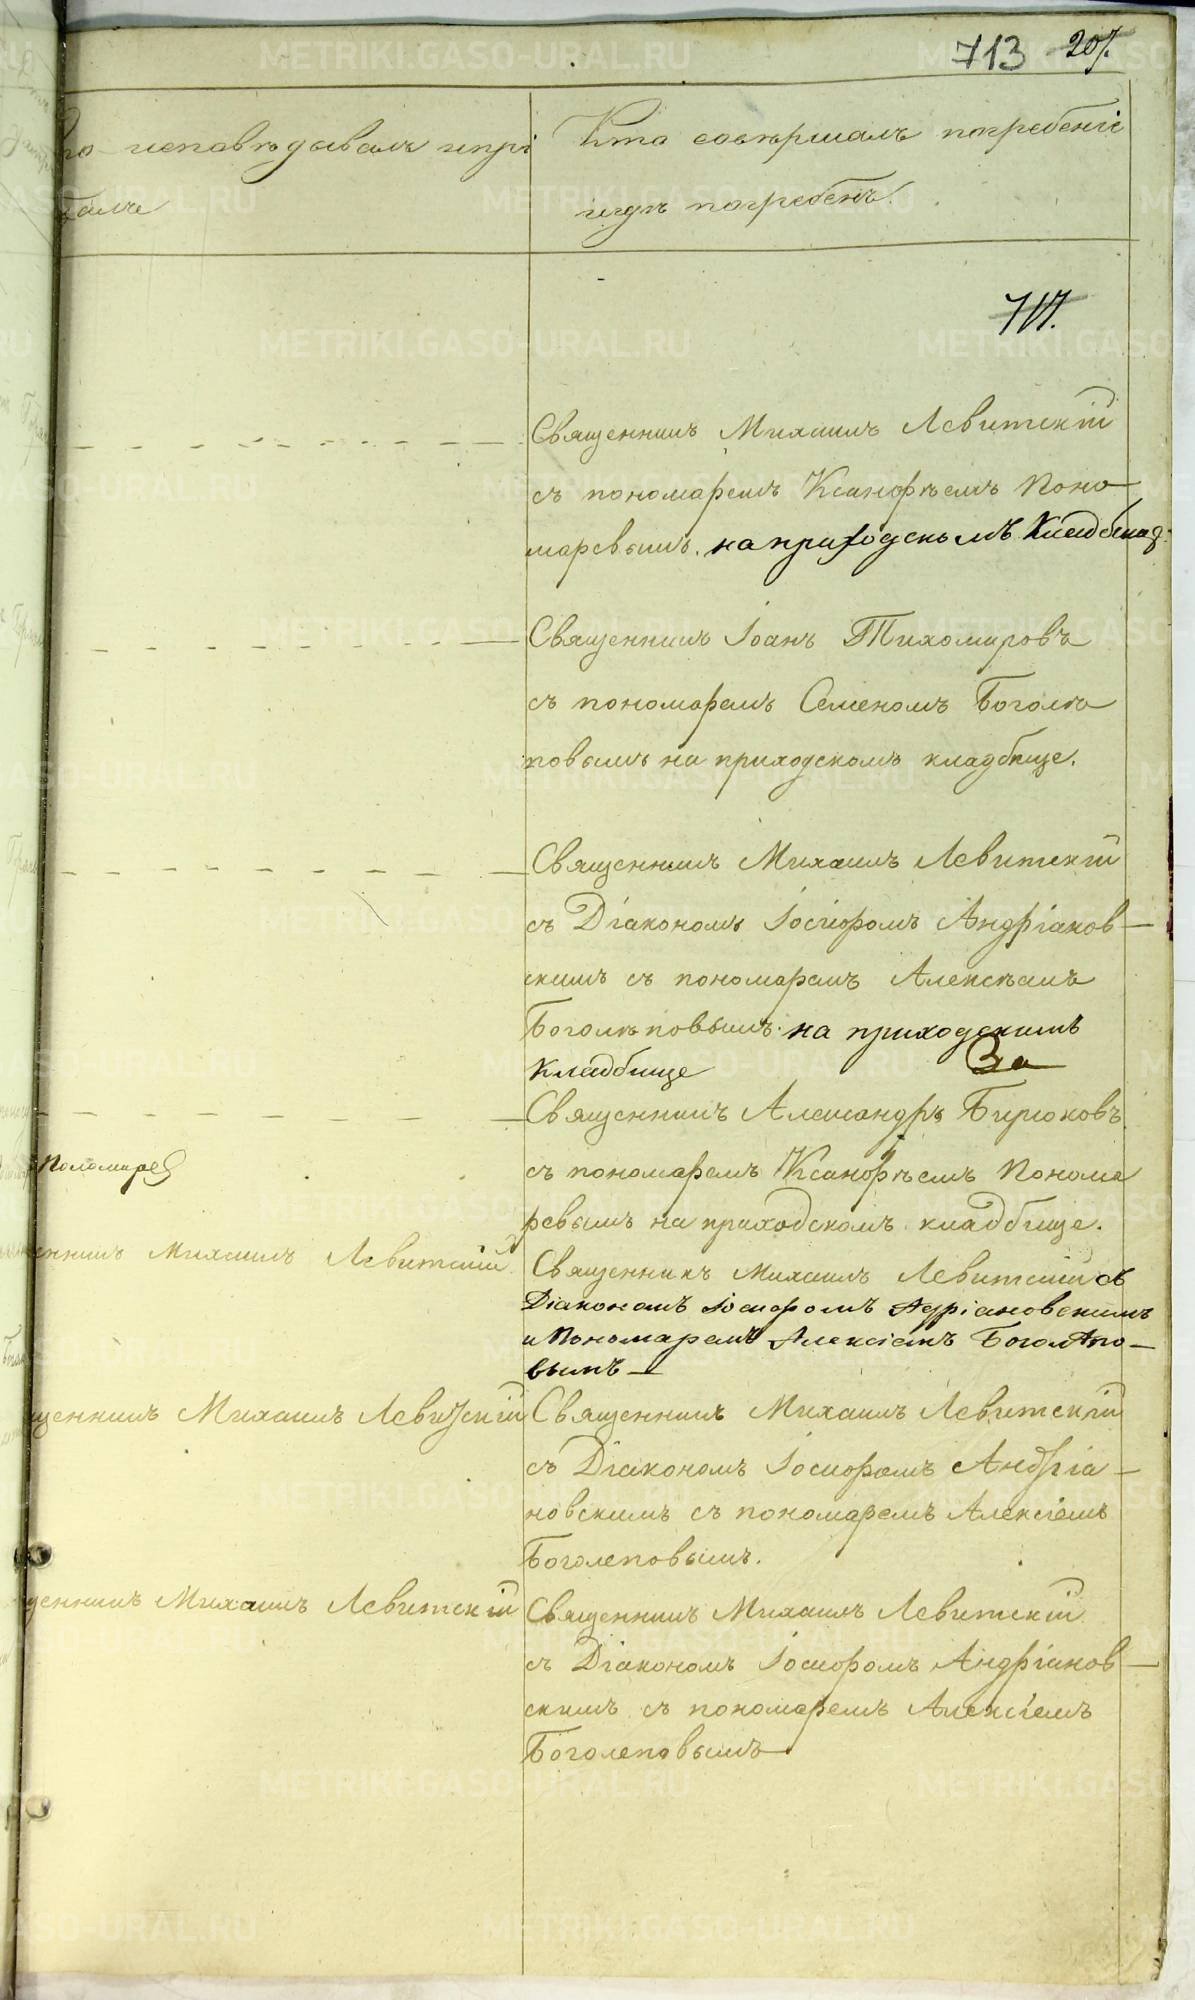 713 207.
исповѣдывалъ и прі
Кто совершалъ погребеніе
и гдѣ погребенъ.
717.
Священникъ Михаилъ Левитскій
съ пономаремъ Ксанофѣемъ Поно
маревымъ. на приходскомъ Кладбищѣ
Священникъ Іоанъ Тихомировъ
съ пономаремъ Семеномъ Боголѣ
повымъ на приходскомъ кладбище.
Священникъ Михаилъ Левитскій
съ Діакономъ Іосифомъ Андріанов—
скимъ съ пономаремъ Алексѣемъ
Боголѣповымъ. на приходскимъ
Кладбище За
Священникъ Александръ Бирюковъ
Пономаре
съ пономаремъ Ксанофѣемъ Понома
ревымъ на приходскомъ кладбище.
енникъ Михаилъ Левитскій
Священникъ Михаилъ Левитскій съ
Діакономъ Іосифомъ Адріановскимъ
и Пономаремъ Алексіемъ Боголѣпо—
вымъ—
щенникъ Михаилъ Левитскій
Священникъ Михаилъ Левитскій
съ Діакономъ Іосифомъ Андріа—
новскимъ съ пономаремъ Алексіемъ
Боголеповымъ.
щенникъ Михаилъ Левитскій
Священникъ Михаилъ Левитскій
съ Діакономъ Іосифомъ Андріанов—
скимъ съ пономаремъ Алексіемъ
Боголеповымъ
METRIKI.GASO-URAL.RU